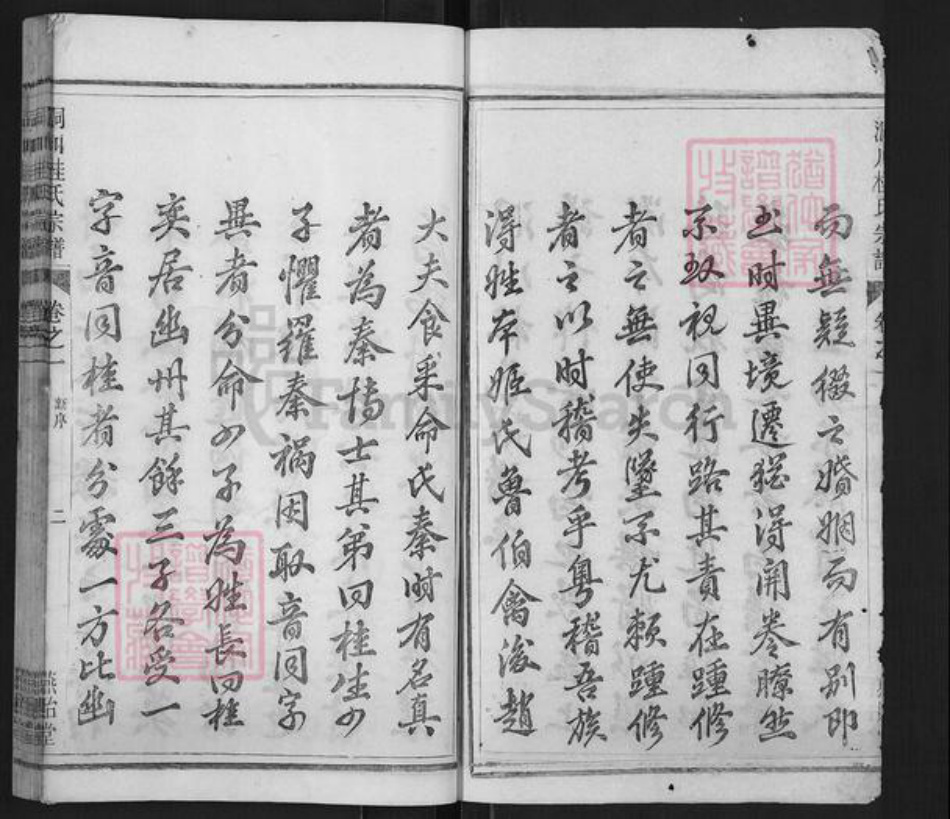 而無疑綴之婚姻而有別即
世時異境遷猶得開卷瞭然
不致視同行路其責在踵修
者之無使失墜不尤賴踵修
者之以時稽考乎粵稽吾族
得姓本姬氏魯伯禽後趙
大夫食采命氏秦時有名真
者為秦博士其弟曰桂生四
子懼罹秦禍因取音同字
異者分命四子為姓長曰桂
奕居幽州其餘三子各受一
字音同桂者分處一方比幽
桂氏宗譜
卷之一
新序
二
燕詒堂
FamilySearch